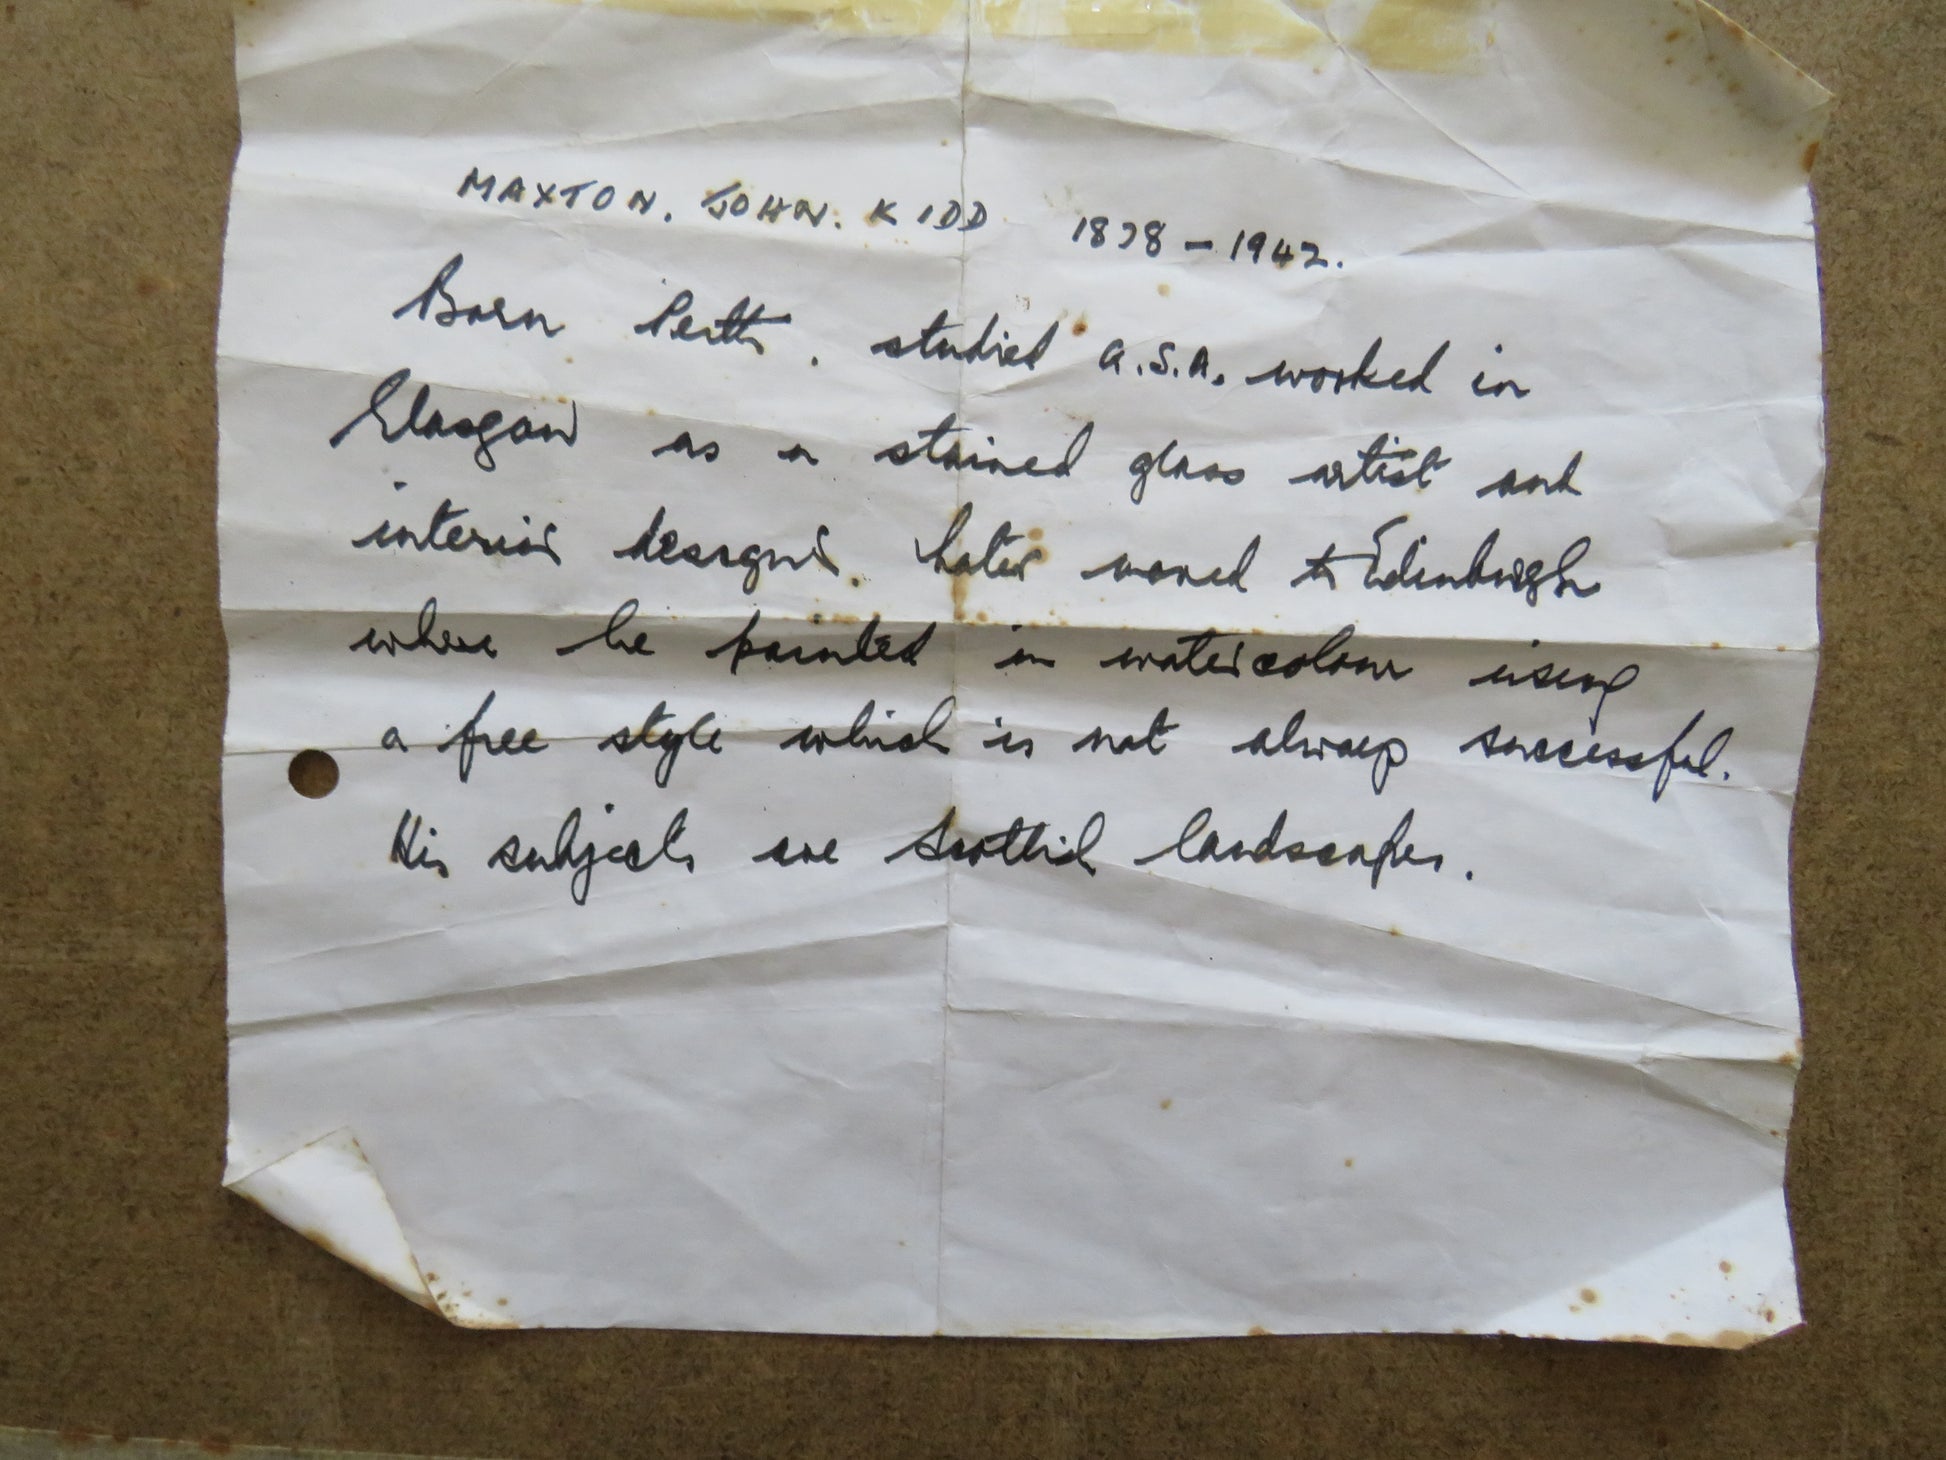 MAXTON. JOHN. KIDD 1878 - 1942.
Born Perth. studied G.S.A. worked in
Glasgow as a stained glass artist and
interior designer. Later moved to Edinburgh
where he painted in watercolour using
a free style which is not always successful.
His subjects are Scottish landscapes.